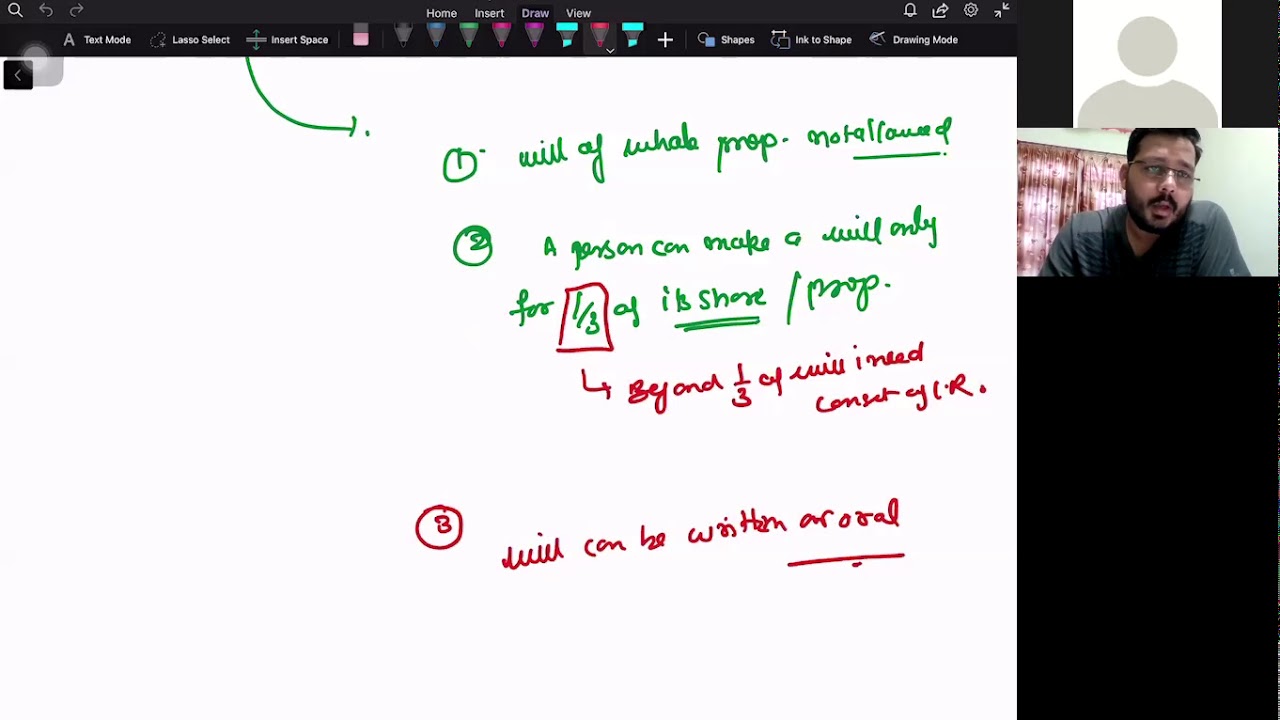 Home Insert Draw View
Text Mode Lasso Select Insert Space Shapes Ink to Shape Drawing Mode
① will of whole prop. not allowed
② A person can make a will only
for 1/3 of its share / prop.
↳ Beyond 1/3 of will i need
conset of L.R.
③ will can be written or oral